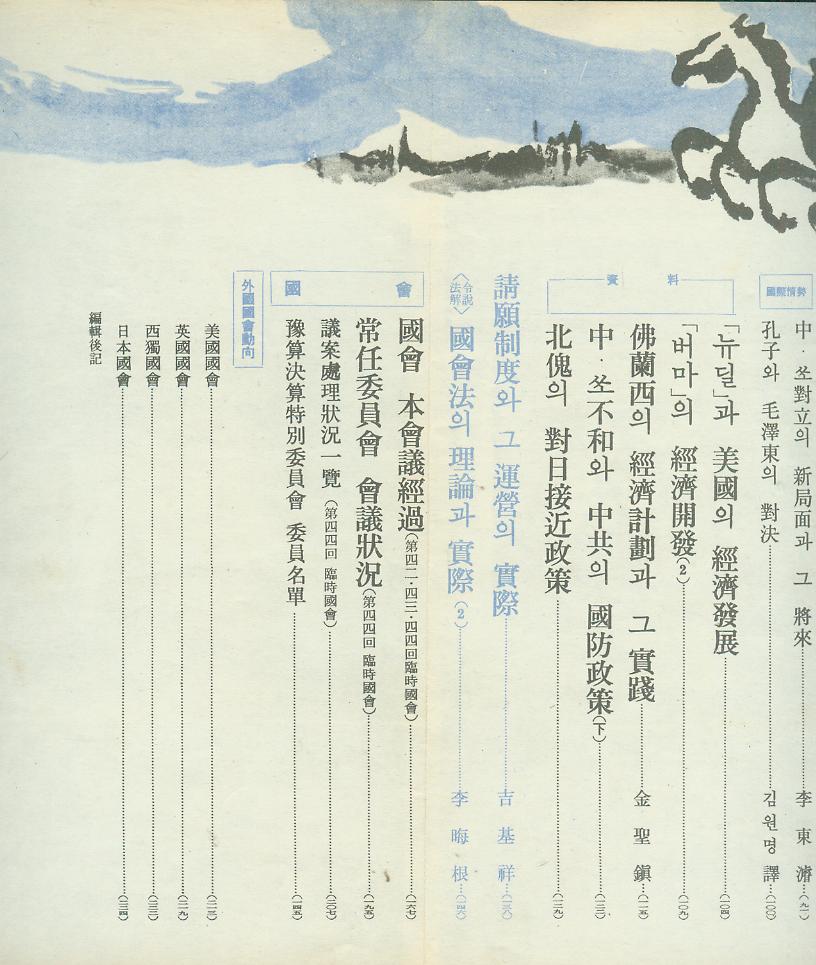 國際情勢
中·쏘對立의 新局面과 그 將來 李東濬 (九一)
孔子와 毛澤東의 對決 김원명 譯 (一〇〇)
資料
「뉴딜」과 美國의 經濟發展 (一〇四)
「버마」의 經濟開發(2) (一〇九)
佛蘭西의 經濟計劃과 그 實踐 金聖鎭 (一一五)
中·쏘不和와 中共의 國防政策(下)
北傀의 對日接近政策 (一二九)
請願制度와 그 運營의 實際 吉基祥 (一三八)
〈法令解說〉 國會法의 理論과 實際(2) 李晦根 (一四六)
國會
國會 本會議經過(第四二·四三·四四回臨時國會) (一六七)
常任委員會 會議狀況(第四四回 臨時國會) (一九五)
議案處理狀況一覽(第四四回 臨時國會) (二〇七)
豫算決算特別委員會 委員名單 (一四五)
外國國會動向
美國國會 (二一三)
英國國會 (二一九)
西獨國會
日本國會
編輯後記